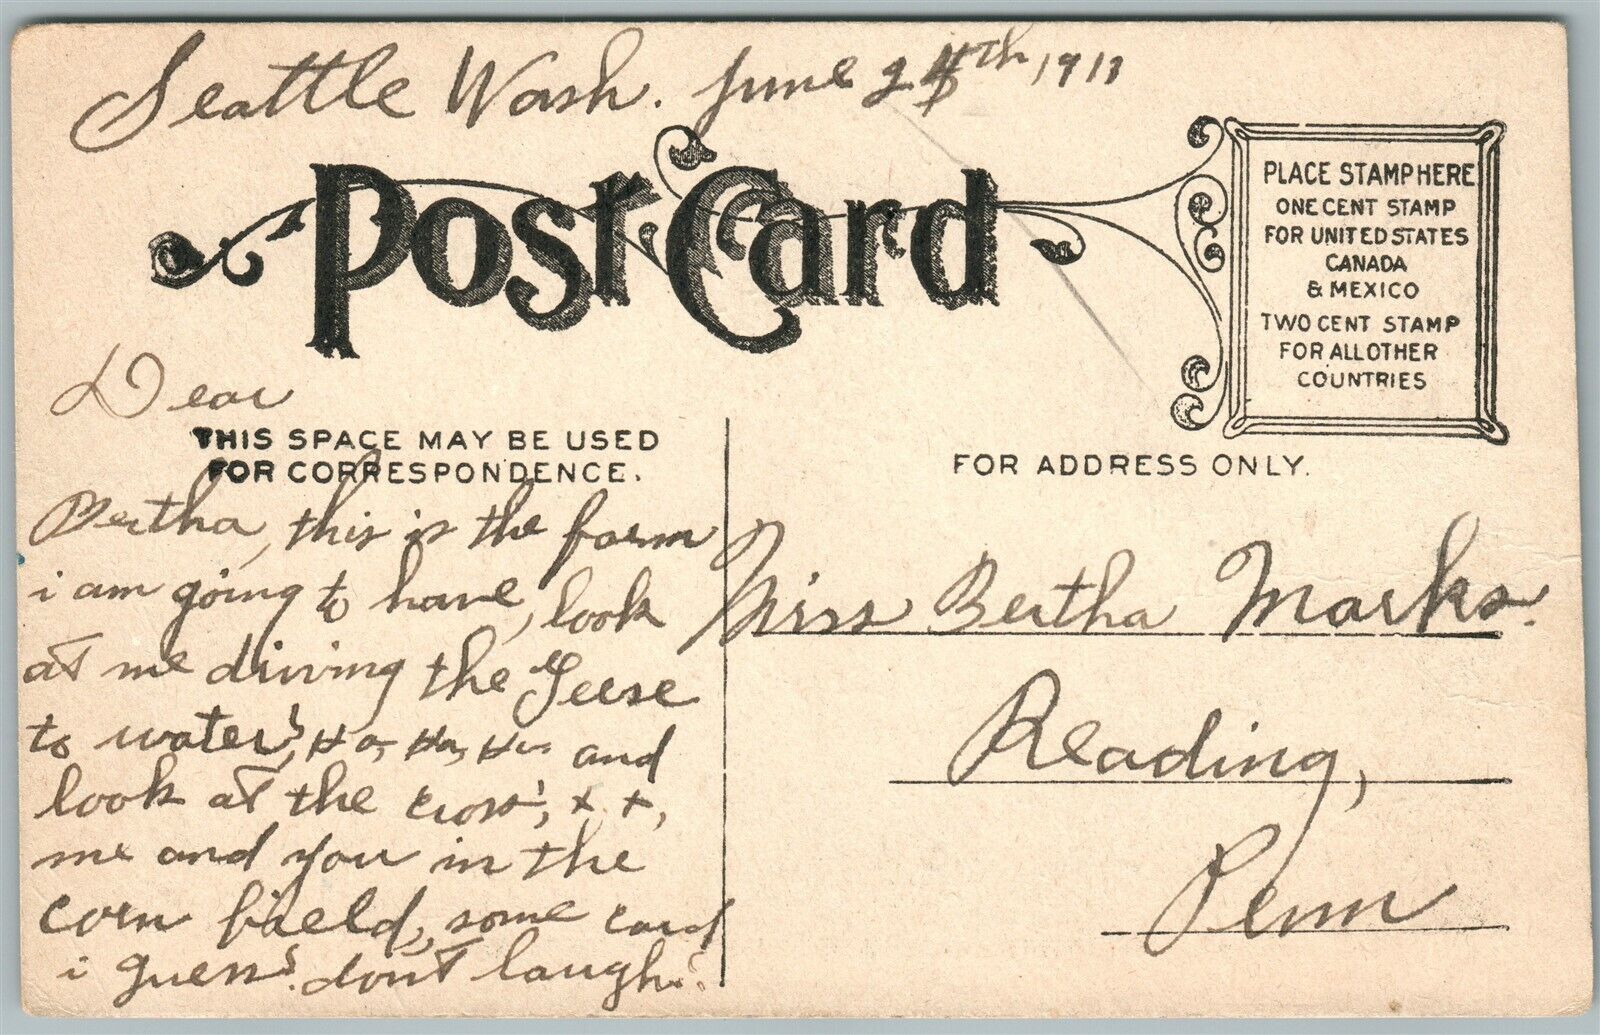 Seattle Wash. June 2 th 1911
Post Card
PLACE STAMP HERE
ONE CENT STAMP
FOR UNITED STATES
CANADA
& MEXICO
TWO CENT STAMP
FOR ALL OTHER
COUNTRIES
Dear
THIS SPACE MAY BE USED
FOR CORRESPONDENCE.
Bertha, this is the farm
i am going to have, look
at me driving the Geese
to water, Ha, Ha, Ha and
look at the cross, x x,
me and you in the
corn field, some card
i guess. dont laugh.
FOR ADDRESS ONLY.
Miss Bertha Marks.
Reading,
Penn